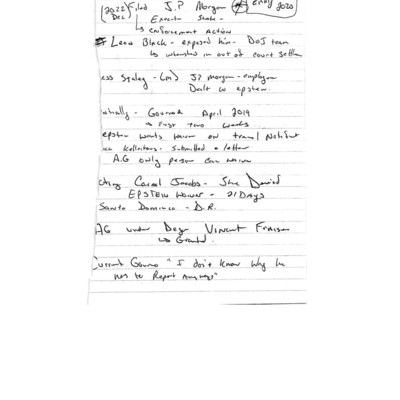 (2022 Dec) Filed J.P Morgan Early 2020
Execute State -
↳ enforcement action
Leon Black - exposed him - DOJ team
↳ in out of court settlem
ess Staley - (m) JP morgan - employee
Dealt w epstein.
itially - April 2019
→ First two weeks
epstein wants waiver on travel Notificat
Kellerhals - Submitted a letter
A.G only person can waive
cting Carol Jacobs - She Denied
EPSTEIN waiver - 21 DAYS
Santo Domingo - D.R.
AG under Day Vincent Frazier
↳ Granted.
Current "I don't know why he
has to Report Anyways"